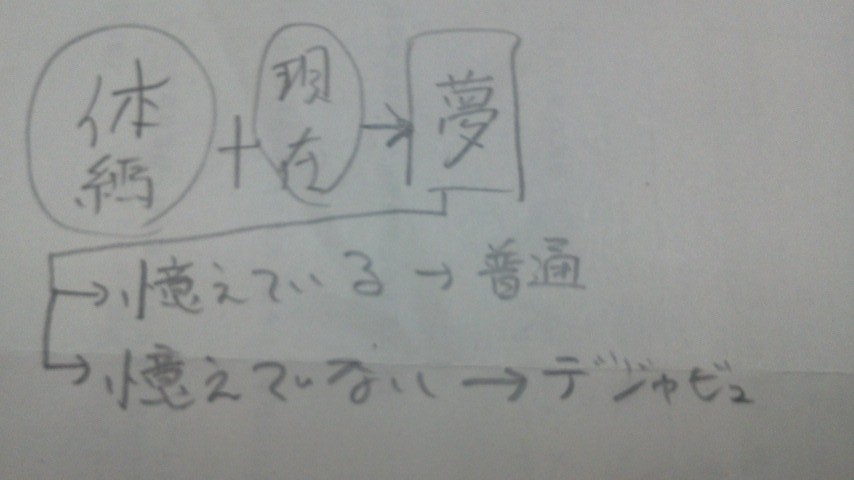 体 + 現在 → 夢
→ 憶えている → 普通
→ 憶えていない → デジャビュ